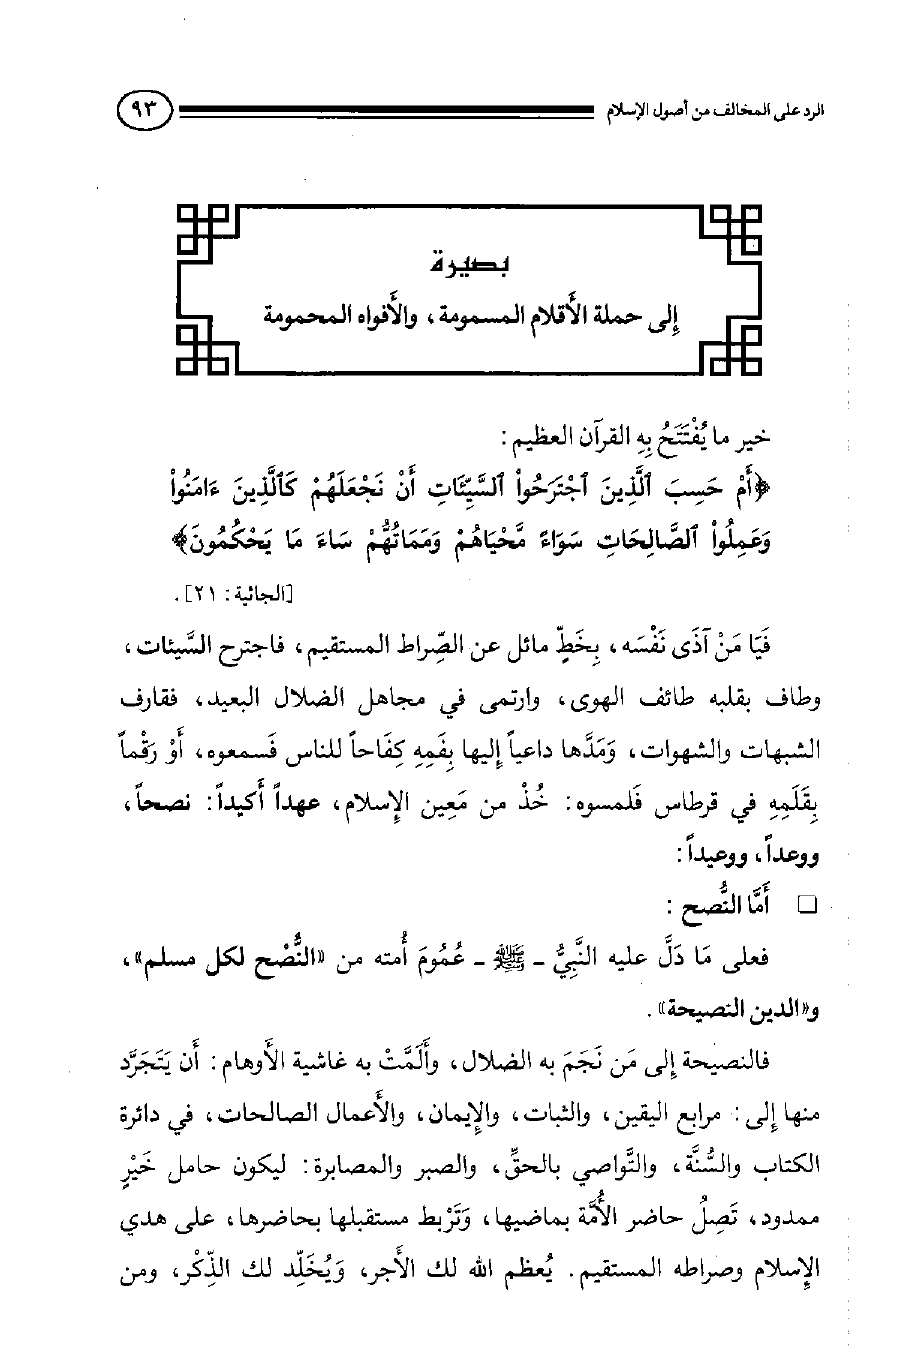 الرد على المخالف من أصول الإسلام ٩٣
بصيرة
إلى حملة الأقلام المسمومة، والأفواه المحمومة
خير ما يُفْتَتَحُ بِهِ القرآن العظيم:
﴿أَمْ حَسِبَ ٱلَّذِينَ ٱجْتَرَحُواْ ٱلسَّيِّئَاتِ أَنْ نَجْعَلَهُمْ كَٱلَّذِينَ ءَامَنُواْ
وَعَمِلُواْ ٱلصَّالِحَاتِ سَوَاءً مَّحْيَاهُمْ وَمَمَاتُهُمْ سَاءَ مَا يَحْكُمُونَ﴾
[الجاثية: ٢١].
فَيَا مَنْ آذَى نَفْسَه، بِخَطٍّ مائل عن الصِّراط المستقيم، فاجترح السَّيئات،
وطاف بقلبه طائف الهوى، وارتمى في مجاهل الضلال البعيد، فقارف
الشبهات والشهوات، وَمَدَّها داعياً إليها بِفَمِهِ كِفَاحاً للناس فَسمعوه، أَوْ رَقْماً
بِقَلَمِهِ في قرطاس فَلمسوه: خُذْ من مَعِين الإسلام، عهداً أكيداً: نصحاً،
ووعداً، ووعيداً:
□ أَمَّا النُّصح:
فعلى مَا دَلَّ عليه النَّبِيُّ ـ ﷺ ـ عُمُومَ أُمته من «النُّصْح لكل مسلم»،
و«الدين النصيحة».
فالنصيحة إلى مَن نَجَمَ به الضلال، وأَلَمَّتْ به غاشية الأوهام: أن يَتَجَرَّد
منها إلى: مرابع اليقين، والثبات، والإيمان، والأعمال الصالحات، في دائرة
الكتاب والسُّنَّة، والتَّواصي بالحقِّ، والصبر والمصابرة: ليكون حامل خَيْرٍ
ممدود، تَصِلُ حاضر الأُمَّة بماضيها، وَتَرْبط مستقبلها بحاضرها، على هدي
الإسلام وصراطه المستقيم. يُعظم الله لك الأجر، وَيُخَلِّد لك الذِّكْر، ومن